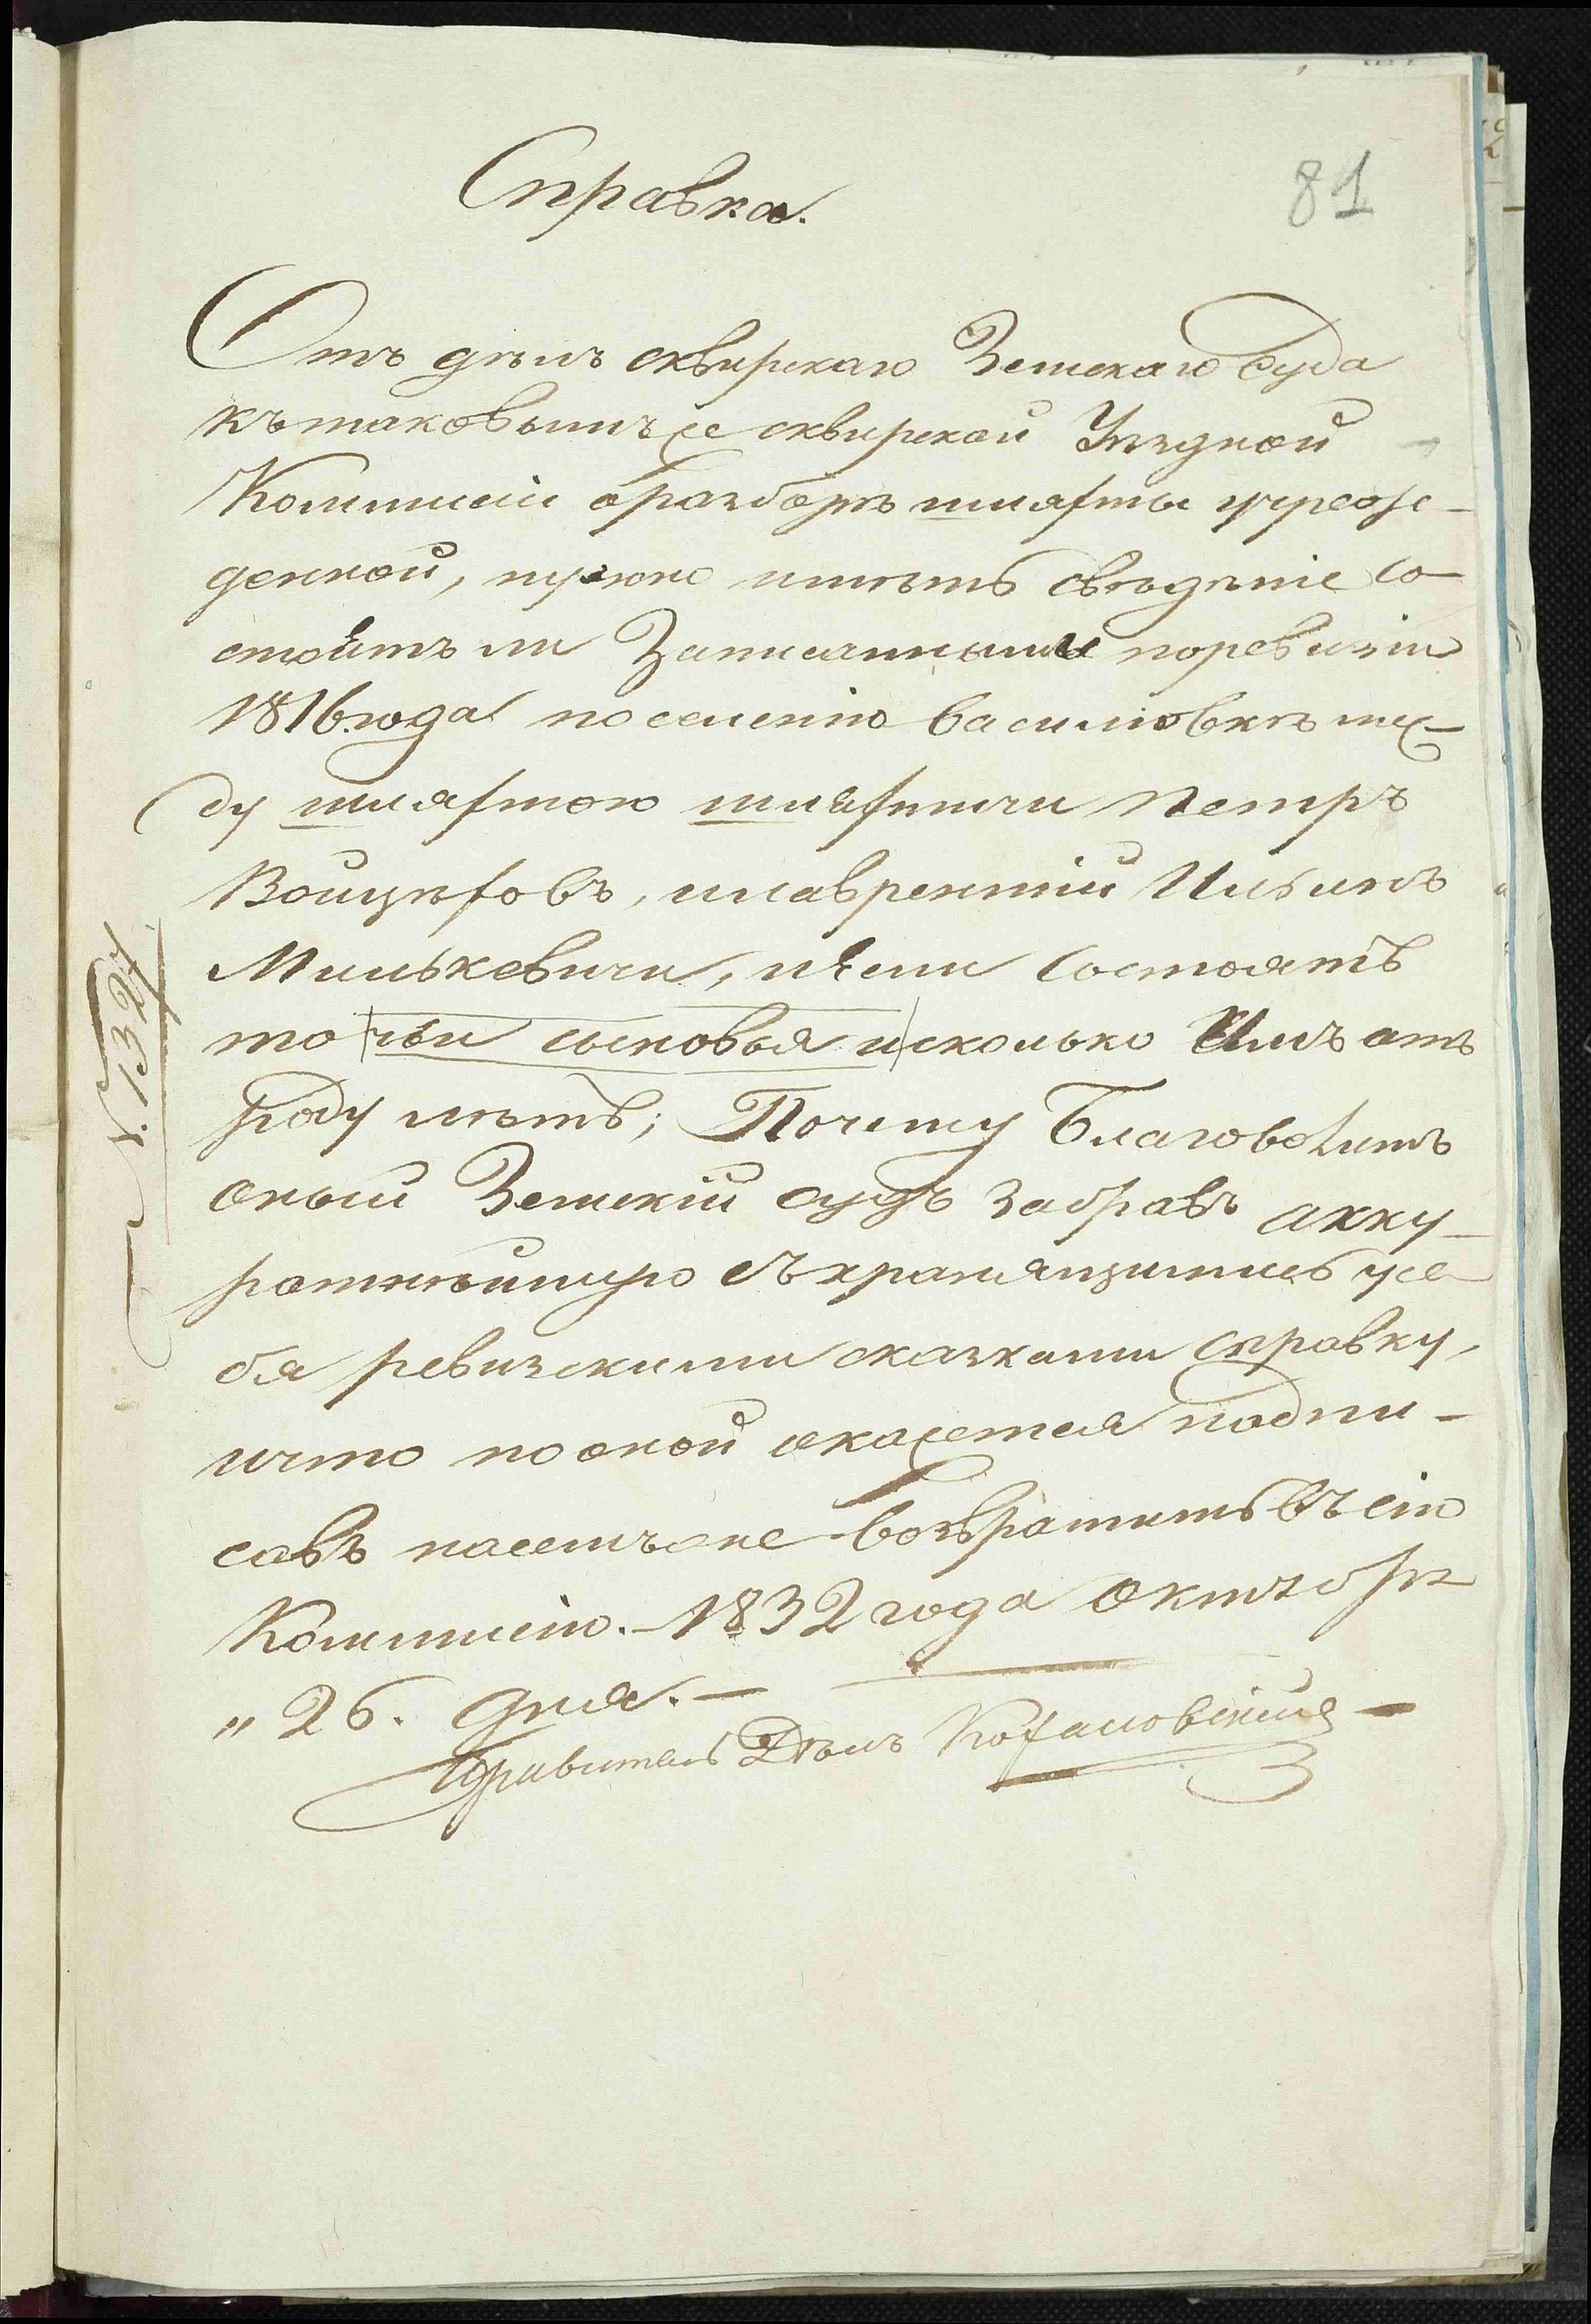 Справка.
81
Отъ дѣлъ сквирскаго Земскаго Суда
къ таковымъ же сквирской Уѣздной
Коммисіи о разборѣ шляхты учреж-
денной, нужно имѣть свѣденіе со-
стоятъ ли Записанными по ревизіи
1816 года по селенію Василювкѣ меж-
ду шляхтою шляхтичи Петръ
Войцѣховъ, и лаврентій Ильинъ
Милькевичи, и если состоятъ
то чьи сыновья и сколько Имъ отъ
Роду лѣтъ; Почему Благоволитъ
оный Земскій судъ забравъ акку-
ратнѣйшую съ хранящимись у се-
бя ревизскими сказками справку,
и что по оной окажется подпи-
савъ насемъ оне возвратить въ сію
Коммисію. 1832 года октября
„ 26. дня.
Правитель Дѣлъ Кохановскій
N. 1327